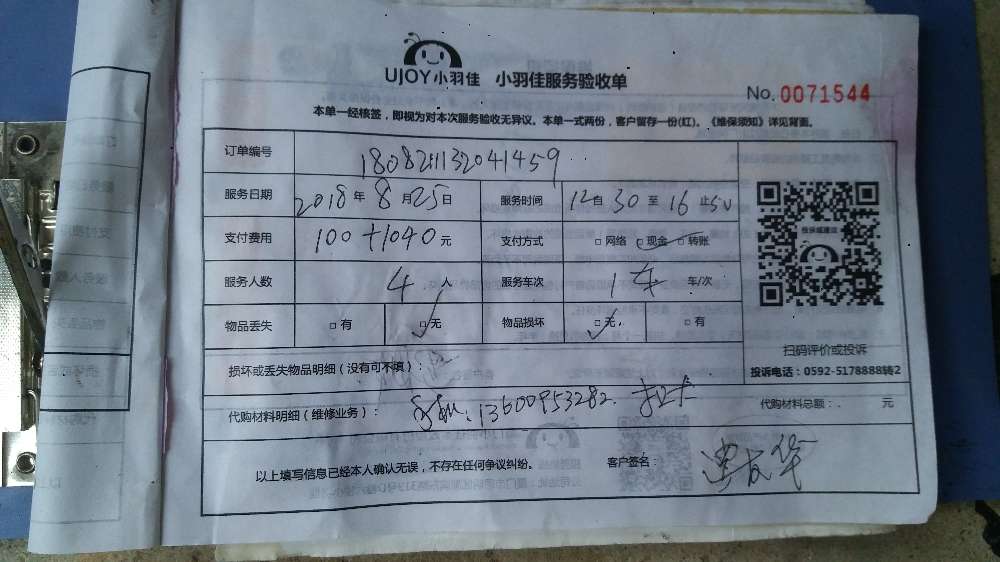 UJOY小羽佳 小羽佳服务验收单
No. 0071544
本单一经核签，即视为对本次服务验收无异议。本单一式两份，客户留存一份(红)。《维保须知》详见背面。
订单编号 180821132041459
服务日期 2018年8月25日 服务时间 12自30至16止50
支付费用 100+1040元 支付方式 □网络 □现金 □转账
服务人数 4人 服务车次 1车 车/次
物品丢失 □有 □无 物品损坏 □无 □有
扫码评价或投诉
投诉电话：0592-5178888转2
损坏或丢失物品明细（没有可不填）：
代购材料明细（维修业务）： 13600953282. 代购材料总额： 元
以上填写信息已经本人确认无误，不存在任何争议纠纷。 客户签名：